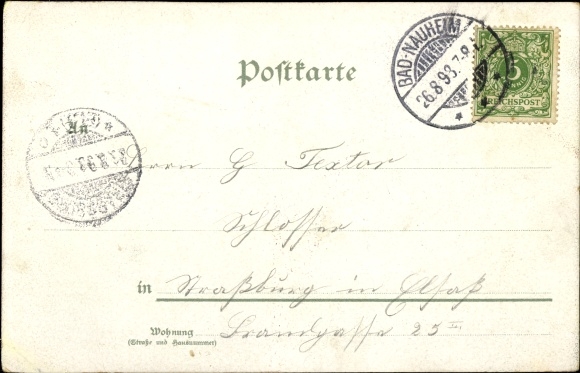 Postkarte
BAD-NAUHEIM
26.8.98.7-8
5
REICHSPOST
An
Herrn G Textor
Schlosser
in Straßburg in Elsaß
Wohnung
(Straße und Hausnummer)
Brandgasse 23 II.